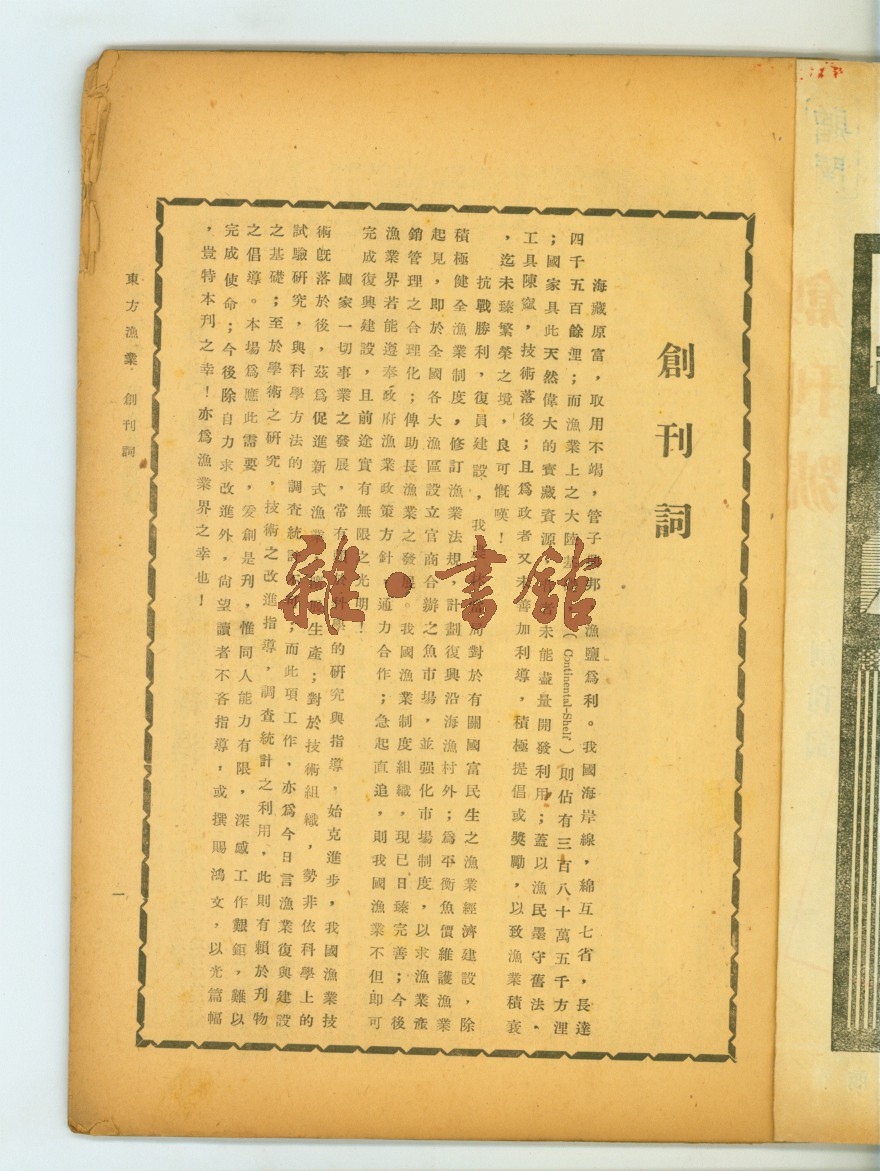 創刊詞
海藏原富，取用不竭，管子邦，漁鹽爲利。我國海岸線，綿亙七省，長達
四千五百餘浬；而漁業上之大陸（Continental-Shelf）則佔有三百八十萬五千方浬
；國家具此天然偉大的寶藏資源未能盡量開發利用；蓋以漁民墨守舊法，
工具陳窳，技術落後；且爲政者又未加利導，積極提倡或獎勵，以致漁業積衰
，迄未臻繁榮之境，良可慨嘆！
抗戰勝利，復員建設，我局對於有關國富民生之漁業經濟建設，除
積極健全漁業制度，修訂漁業法規，計劃復興沿海漁村外；爲平衡魚價維護漁業
起見，即於全國各大漁區設立官商合辦之魚市場，並强化市場制度，以求漁業產
銷管理之合理化；俾助長漁業之發展。我國漁業制度組織，現已日臻完善；今後
漁業界若能遵奉政府漁業政策方針，通力合作；急起直追，則我國漁業不但即可
完成復興建設，且前途實有無限之光明！
國家一切事業之發展，常有的研究與指導，始克進步，我國漁業技
術旣落於後，茲爲促進新式漁業生產；對於技術組織，勢非依科學上的
試驗研究，與科學方法的調查統；而此項工作，亦爲今日言漁業復興建設
之基礎；至於學術之研究，技術之改進指導，調查統計之利用，此則有賴於刊物
之倡導。本場爲應此需要，爰創是刊，惟同人能力有限，深感工作艱鉅，難以
完成使命；今後除自力求改進外，尚望讀者不吝指導，或撰賜鴻文，以光篇幅
，豈特本刊之幸！亦爲漁業界之幸也！
東方漁業 創刊詞
一
雜·書館